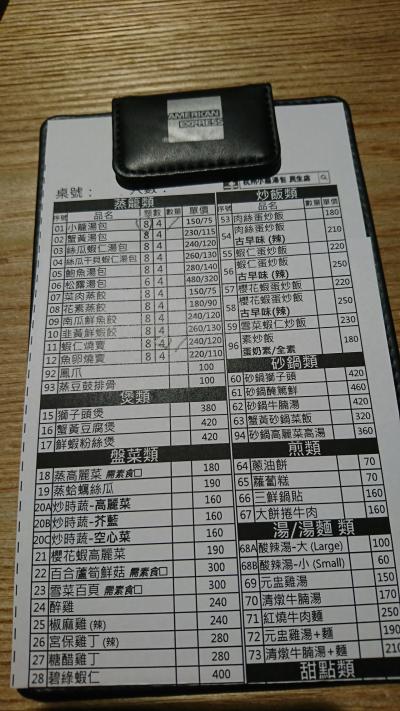 AMERICAN
EXPRESS
桌號：
人數：
杭州小籠湯包 民生店
蒸籠類
序號 品名 整數 數量 單價
01 小籠湯包 8 4 150/75
02 蟹黃湯包 8 4 230/115
03 絲瓜蝦仁湯包 8 4 240/120
04 絲瓜干貝蝦仁湯包 8 4 260/130
05 鮑魚湯包 8 4 280/140
06 松露湯包 6 4 480/320
07 菜肉蒸餃 8 4 150/75
08 花素蒸餃 8 4 180/90
09 南瓜鮮魚餃 8 4 240/120
10 韭黃鮮蝦餃 8 4 260/130
11 蝦仁燒賣 8 4 240/120
12 魚卵燒賣 8 4 220/110
92 鳳爪 100
93 蒸豆豉排骨 100
煲類
15 獅子頭煲 380
16 蟹黃豆腐煲 420
17 鮮蝦粉絲煲 420
盤菜類
18 蒸高麗菜 需素食□ 180
19 蒸蛤蠣絲瓜 190
20A 炒時蔬-高麗菜 160
20B 炒時蔬-芥藍 160
20C 炒時蔬-空心菜 160
21 櫻花蝦高麗菜 190
22 百合蘆筍鮮菇 需素食□ 300
23 雪菜百頁 需素食□ 300
24 醉雞 240
25 椒麻雞 (辣) 240
26 宮保雞丁 (辣) 280
27 糖醋雞丁 280
28 碧綠蝦仁 400
炒飯類
序號 品名 數量 單價
53 肉絲蛋炒飯 180
54 肉絲蛋炒飯 古早味 (辣) 210
55 蝦仁蛋炒飯 220
56 蝦仁蛋炒飯 古早味 (辣) 250
57 櫻花蝦蛋炒飯 220
58 櫻花蝦蛋炒飯 古早味 (辣) 250
59 雪菜蝦仁炒飯 230
96 素炒飯 蛋奶素/全素 180
砂鍋類
60 砂鍋獅子頭 420
61 砂鍋醃篤鮮 460
62 砂鍋牛腩湯 420
63 蟹黃砂鍋菜飯 320
94 砂鍋高麗菜高湯 360
煎類
64 蔥油餅 70
65 蘿蔔糕 70
66 三鮮鍋貼 160
67 大餅捲牛肉 160
湯/湯麵 類
68A 酸辣湯-大 (Large) 100
68B 酸辣湯-小 (Small) 60
69 元盅雞湯 150
70 清燉牛腩湯 170
71 紅燒牛肉麵 250
72 元盅雞湯+麵 190
73 清燉牛腩湯+麵 210
甜點類